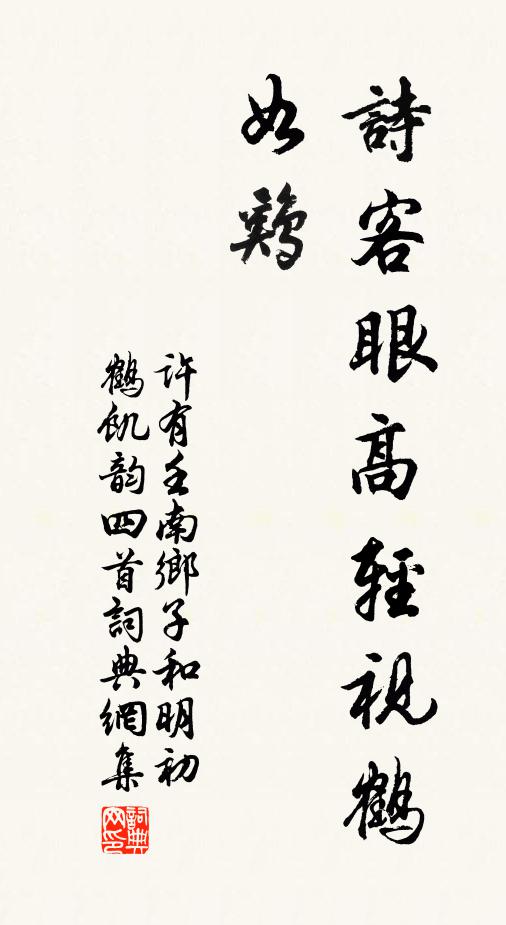 詩客眼高輕視鶴
如鷄
許有壬南鄉子和明初
鶴飢韵四首詞典網集
詞典网印